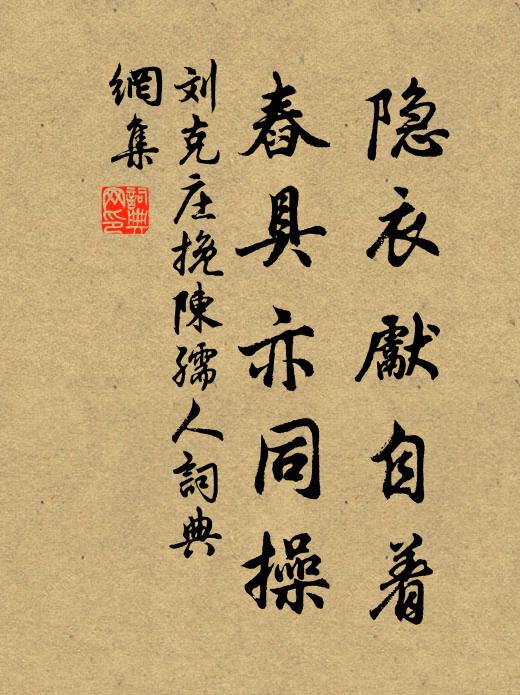 隐衣獻自着
舂具亦同操
刘克庄挽陳孺人詞典
網集
詞典
网印